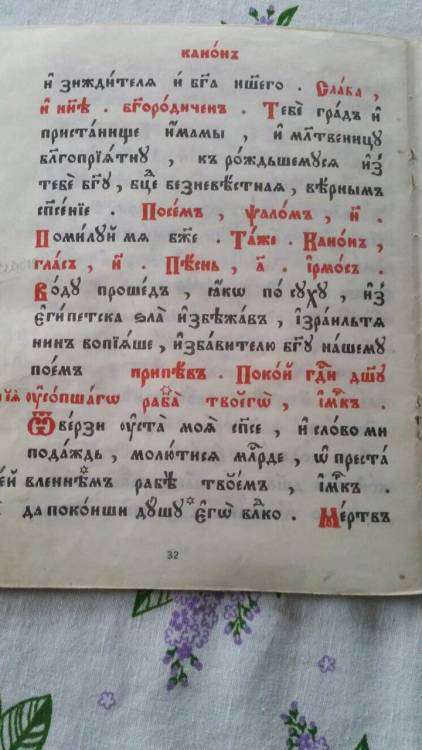 кано́нъ
и҆ зижди́телѧ и҆ бг҃а нш҃его . Сла́ва ,
и҆ нн҃ѣ . бг҃оро́диченъ . Тебѐ гра́дъ и҆
приста́нище и҆́мамы , и҆ мл҃твеницу
бл҃гопрїѧ́тну , къ ро́ждьшемусѧ и҆з̾
тебѐ бг҃у , бц҃е безневѣ́стнаѧ , вѣ́рнымъ
сп҃се́нїе . Посе́мъ , ѱало́мъ , н҃ .
Поми́луй мѧ бж҃е . Та́же . Кано́нъ ,
гла́съ , и҃ . Пѣ́снь , а҃ . і҆рмо́съ .
Во́ду проше́дъ , ꙗ҆́кѡ по́ суху , и҆з̾
є҆ги́петска ѕла̀ и҆збѣжа́въ , і҆зра́ильтѧ
нинъ вопїѧ́ше , и҆зба́вителю бг҃у на́шему
пое́мъ припѣ́въ . Поко́й гд҇и дш҃у
оу҆со́пшагѡ раба̀ твоегѡ̀ , и҆́мк .
Ѿве́рзи оу҆ста̀ моѧ̀ сп҃се , и҆ сло́во ми
пода́ждь , моли́тисѧ мл҇рде , ѡ҆ преста
вленнѣмъ рабѣ̀ твое́мъ , и҆́мк .
да поко́иши ду́шу є҆гѡ̀ влк҇о . Ме́ртвъ
32